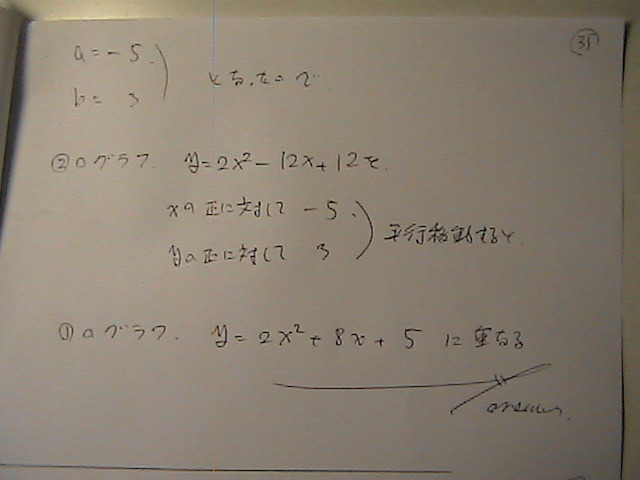 ㉟
a = -5.
b = 3
となったので
②のグラフ. y = 2x² - 12x + 12を.
xの正に対して -5.
yの正に対して 3
平行移動すると.
①のグラフ. y = 2x² + 8x + 5 に重なる
answer.